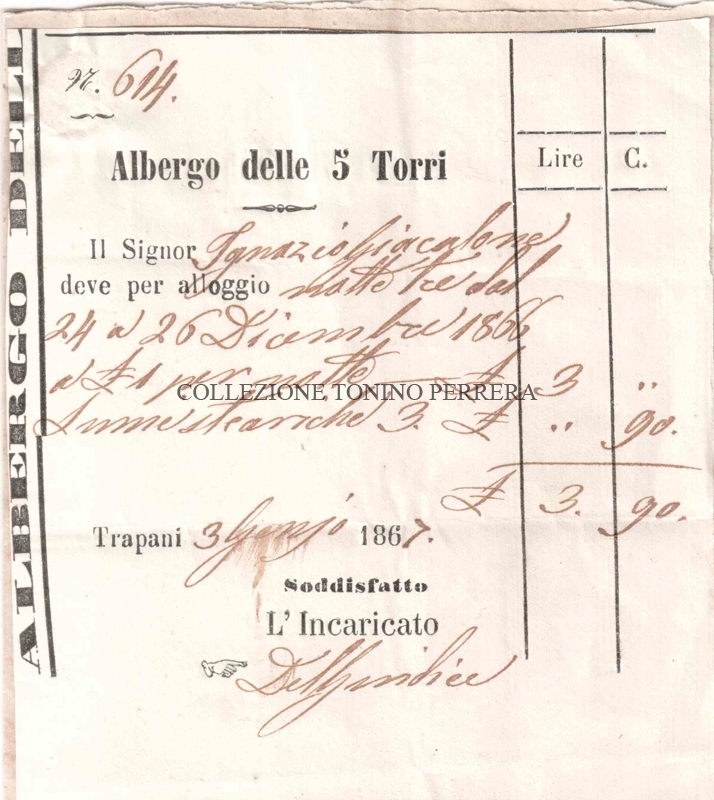 ALBERGO DELL
N. 614.
Albergo delle 5 Torri
Lire C.
Il Signor Ignazio Giacalone
deve per alloggio notte tre dal
24 a 26 Dicembre 1866
a £ 1 per notte £ 3 "
COLLEZIONE TONINO PERRERA
Lume steariche 3. £ " 90.
£ 3. 90.
Trapani 3 Genjo 1867.
Soddisfatto
L' Incaricato
Del Giudice